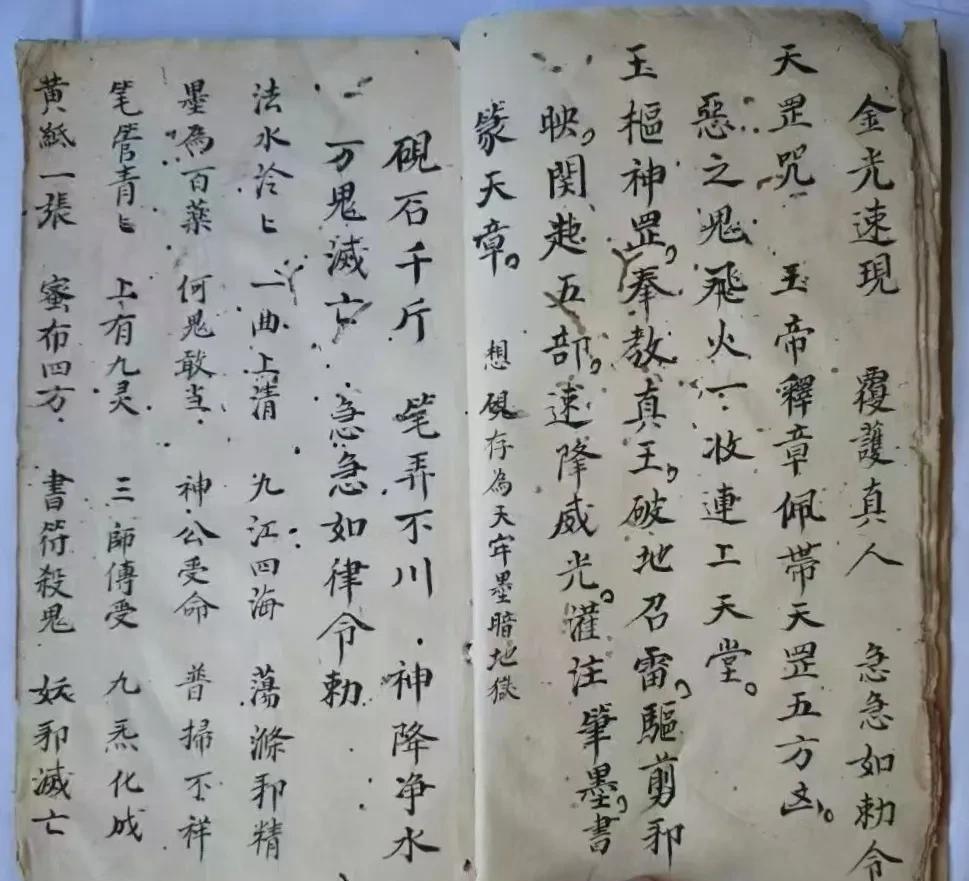 金光速現 覆護真人 急急如勅令
天罡咒 玉帝釋章佩帶天罡五方凶。
惡之鬼飛火一收連上天堂。
玉樞神罡。奉教真王，破地召雷，驅剪邪
映，関赴五部，速降威光。灌注筆墨，書
篆天章。 想硯存為天牢墨暗地獄
硯石千斤 笔弄不川 神降净水
万鬼滅亡 急急如律令勅
法水泠〻 一曲上清 九江四海 蕩滌邪精
墨為百藥 何鬼敢当 神公受命 普掃不祥
笔管青〻 上有九灵 三師傳受 九炁化成
黄紙一張 蜜布四方 書符殺鬼 妖邪滅亡